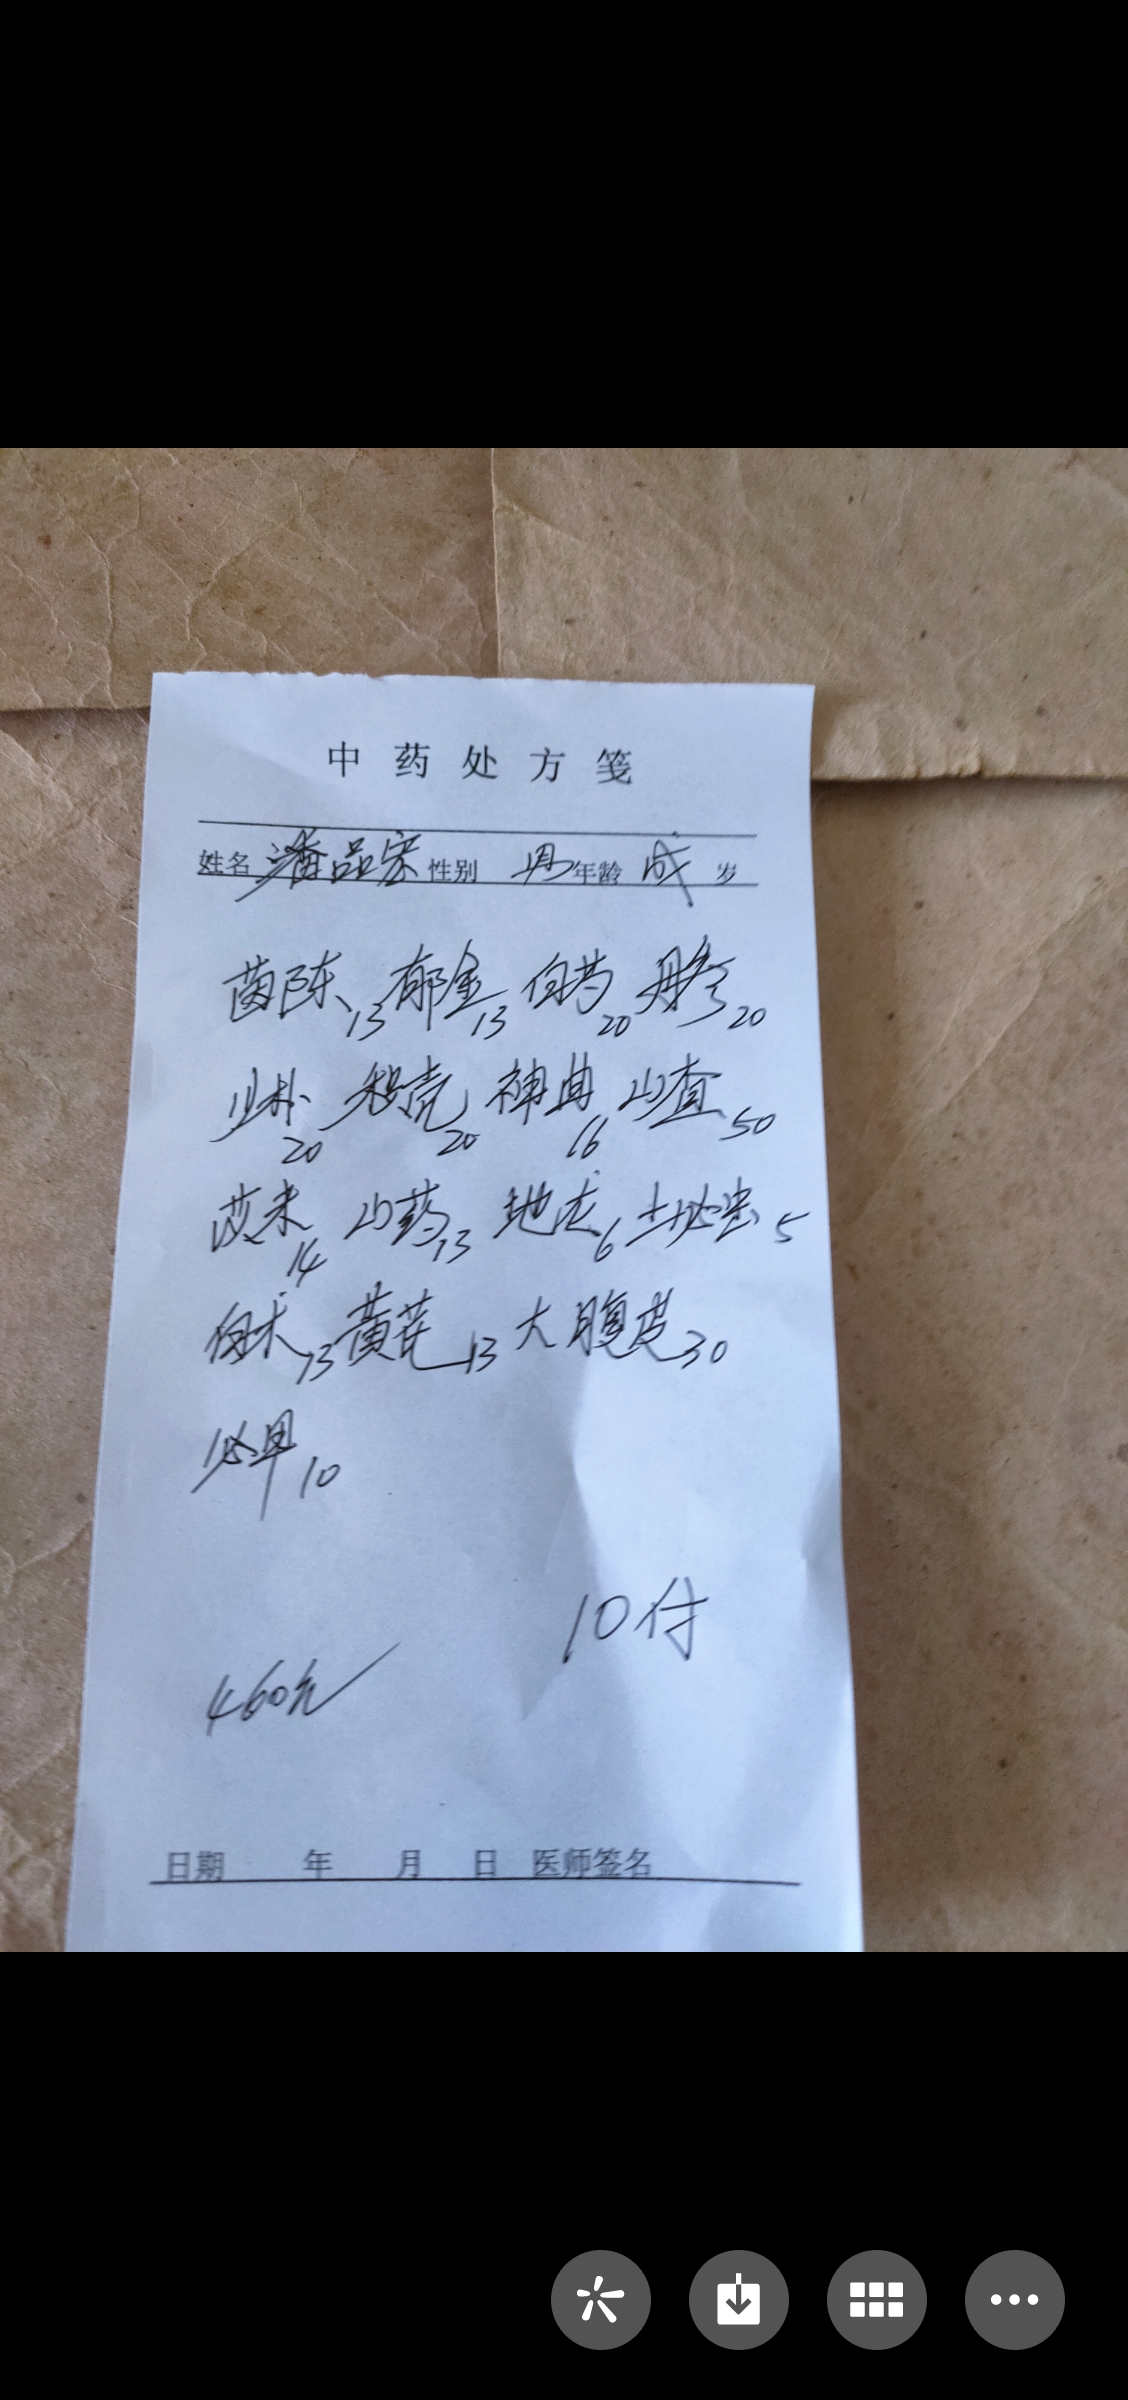 中药处方笺
姓名 潘品宏 性别 男 年龄 成 岁
茵陈13 郁金13 白芍20 丹参20
川朴20 枳壳20 神曲16 山查50
苡米14 山药13 地龙6 土必虫5
白术13 黄芪13 大腹皮30
必甲10
10付
460元
日期 年 月 日 医师签名